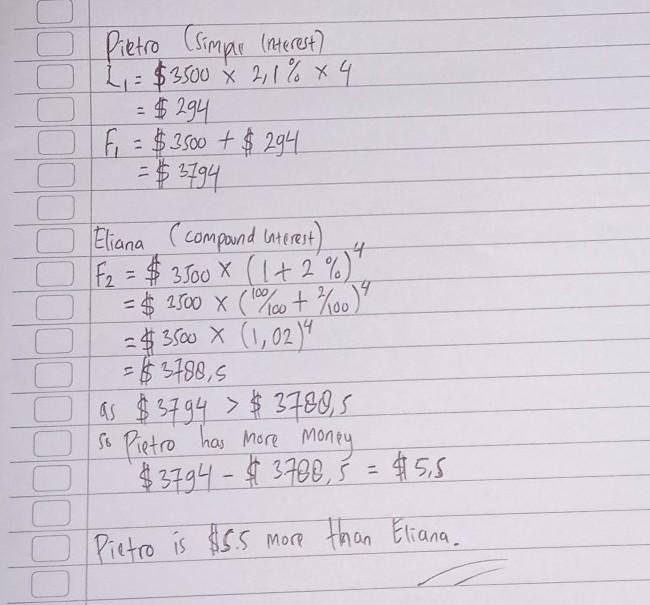 Pietro (Simple Interest)
I₁ = $3500 × 2,1% × 4
= $294
F₁ = $3500 + $294
= $3794
Eliana (compound interest)
F₂ = $3500 × (1+2%)⁴
= $3500 × (100/100 + 2/100)⁴
= $3500 × (1,02)⁴
= $3788,5
as $3794 > $3788,5
so Pietro has more money
$3794 - $3788,5 = $5,5
Pietro is $5.5 more than Eliana.